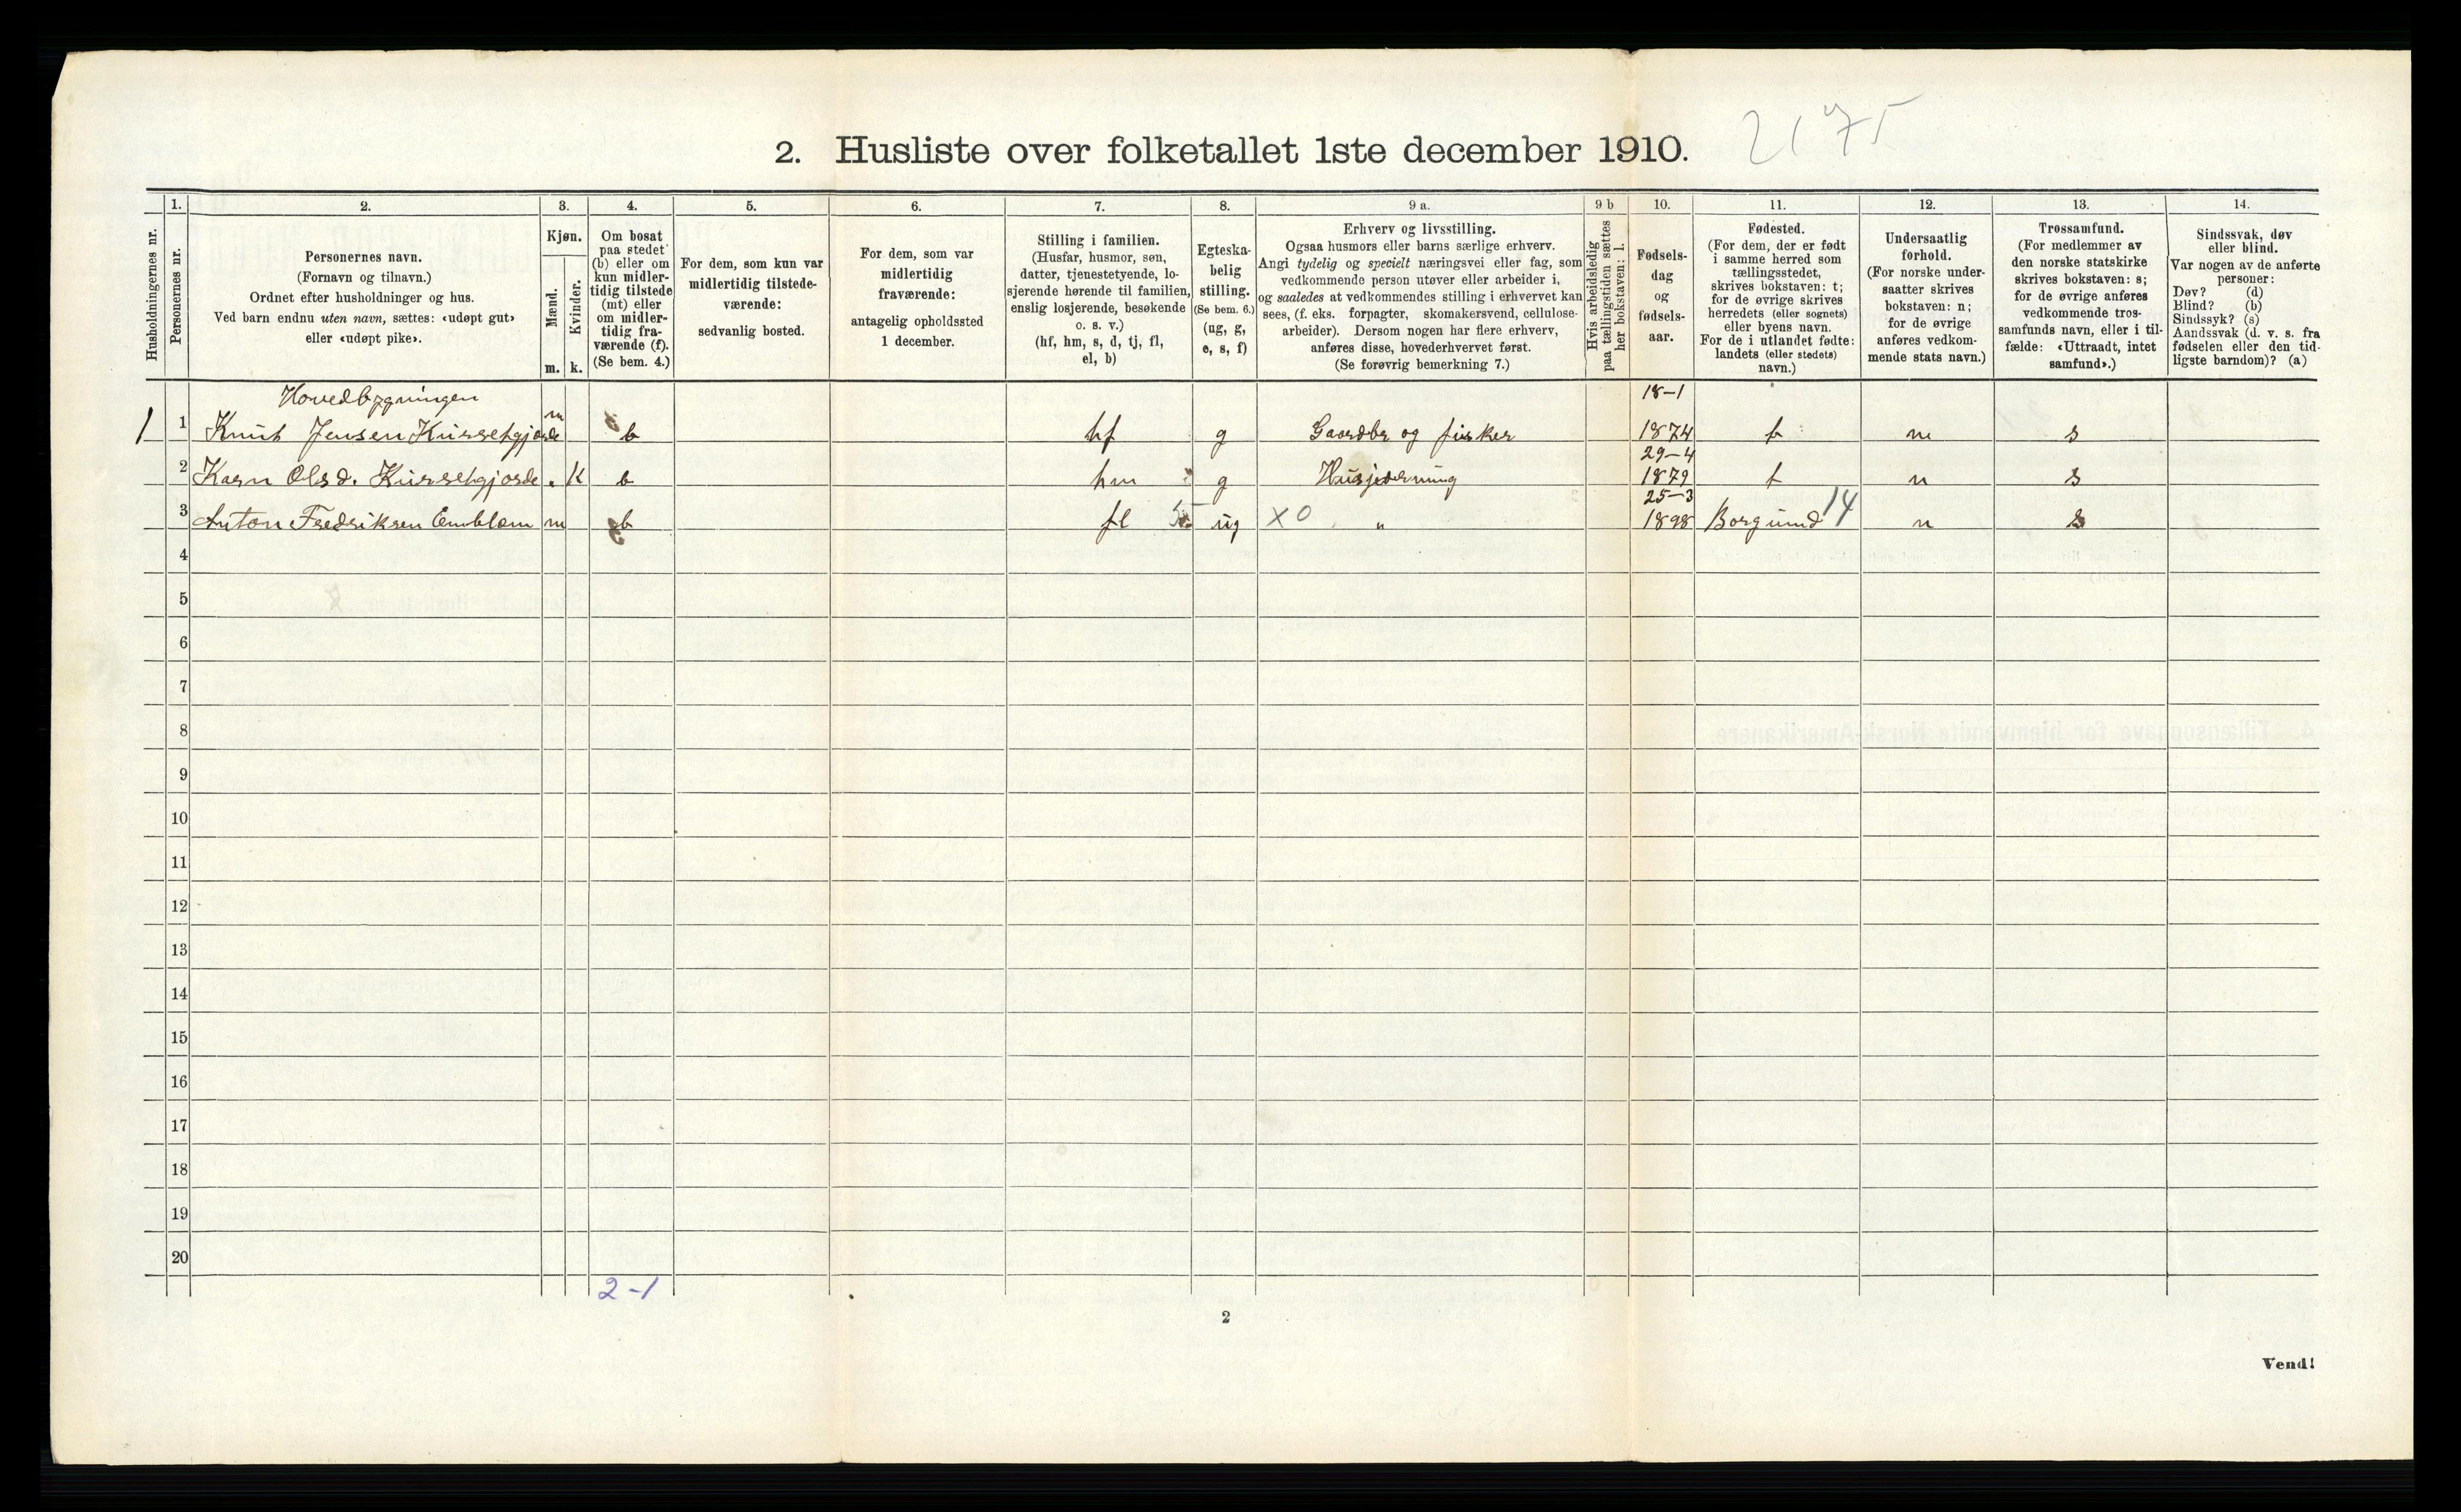 2175
2. Husliste over folketallet 1ste december 1910.
Husholdningernes nr.
1.
Personernes nr.
2.
Personernes navn.
(Fornavn og tilnavn.)
Ordnet efter husholdninger og hus.
Ved barn endnu uten navn, sættes: «udøpt gut»
eller «udøpt pike».
3.
Kjøn.
Mænd.
Kvinder.
m. k.
4.
Om bosat
paa stedet
(b) eller om
kun midler-
tidig tilstede
(mt) eller
om midler-
tidig fra-
værende (f).
(Se bem. 4.)
5.
For dem, som kun var
midlertidig tilstede-
værende:
sedvanlig bosted.
6.
For dem, som var
midlertidig
fraværende:
antagelig opholdssted
1 december.
7.
Stilling i familien.
(Husfar, husmor, søn,
datter, tjenestetyende, lo-
sjerende hørende til familien,
enslig losjerende, besøkende
o. s. v.)
(hf, hm, s, d, tj, fl,
el, b)
8.
Egteska-
belig
stilling.
(Se bem. 6.)
(ug, g,
e, s, f)
9 a.
Erhverv og livsstilling.
Ogsaa husmors eller barns særlige erhverv.
Angi tydelig og specielt næringsvei eller fag, som
vedkommende person utøver eller arbeider i,
og saaledes at vedkommendes stilling i erhvervet kan
sees, (f. eks. forpagter, skomakersvend, cellulose-
arbeider). Dersom nogen har flere erhverv,
anføres disse, hovederhvervet først.
(Se forøvrig bemerkning 7.)
9 b
Hvis arbeidsledig
paa tællingstiden sættes
her bokstaven: l.
10.
Fødsels-
dag
og
fødsels-
aar.
11.
Fødested.
(For dem, der er født
i samme herred som
tællingsstedet,
skrives bokstaven: t;
for de øvrige skrives
herredets (eller sognets)
eller byens navn.
For de i utlandet fødte:
landets (eller stedets)
navn.)
12.
Undersaatlig
forhold.
(For norske under-
saatter skrives
bokstaven: n;
for de øvrige
anføres vedkom-
mende stats navn.)
13.
Trossamfund.
(For medlemmer av
den norske statskirke
skrives bokstaven: s;
for de øvrige anføres
vedkommende tros-
samfunds navn, eller i til-
fælde: «Uttraadt, intet
samfund».)
14.
Sindssvak, døv
eller blind.
Var nogen av de anførte
personer:
Døv? (d)
Blind? (b)
Sindssyk? (s)
Aandssvak (d. v. s. fra
fødselen eller den tid-
ligste barndom)? (a)
Hovedbygningen 18-1
1 1 Knut Jensen Kursetgjorde m b hf g Gaardbr og fisker 1874 t n s
29-4
2 Karn Olsd. Kursetgjorde . k b hm g Husgjerning 1879 t n s
25-3
3 Anton Fredriksen Emblem m b fl 5 ug X 0 " 1898 Borgund 14 n s
4
5
6
7
8
9
10
11
12
13
14
15
16
17
18
19
20
2-1
2
Vend!